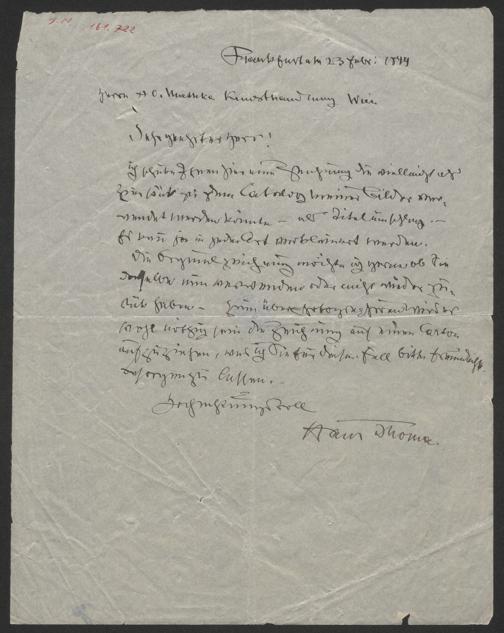 I.N. 161.722
Frankfurt a/m 23 Febr: 1899
Herrn H. O. Miethke Kunsthandlung Wien
Sehr geehrter Herr!
ich schicke Ihnen hier eine Zeichnung die vielleicht als
zu dem Catalog meiner Bilder ver-
wendet werden könnte – als Titelumschlag –
Er kann ja in jeder Art verkleinert werden.
Die Originalzeichnung möchte ich gerne ob Sie
dieselbe nun verwenden oder nicht wieder zu-
rück haben –
wohl nöthig sein die Zeichnung auf einen Carton
aufzuziehen, was ich Sie für diesen Fall bitte freundlichst
besorgen zu lassen.
Hochachtungsvoll
Hans Thoma.